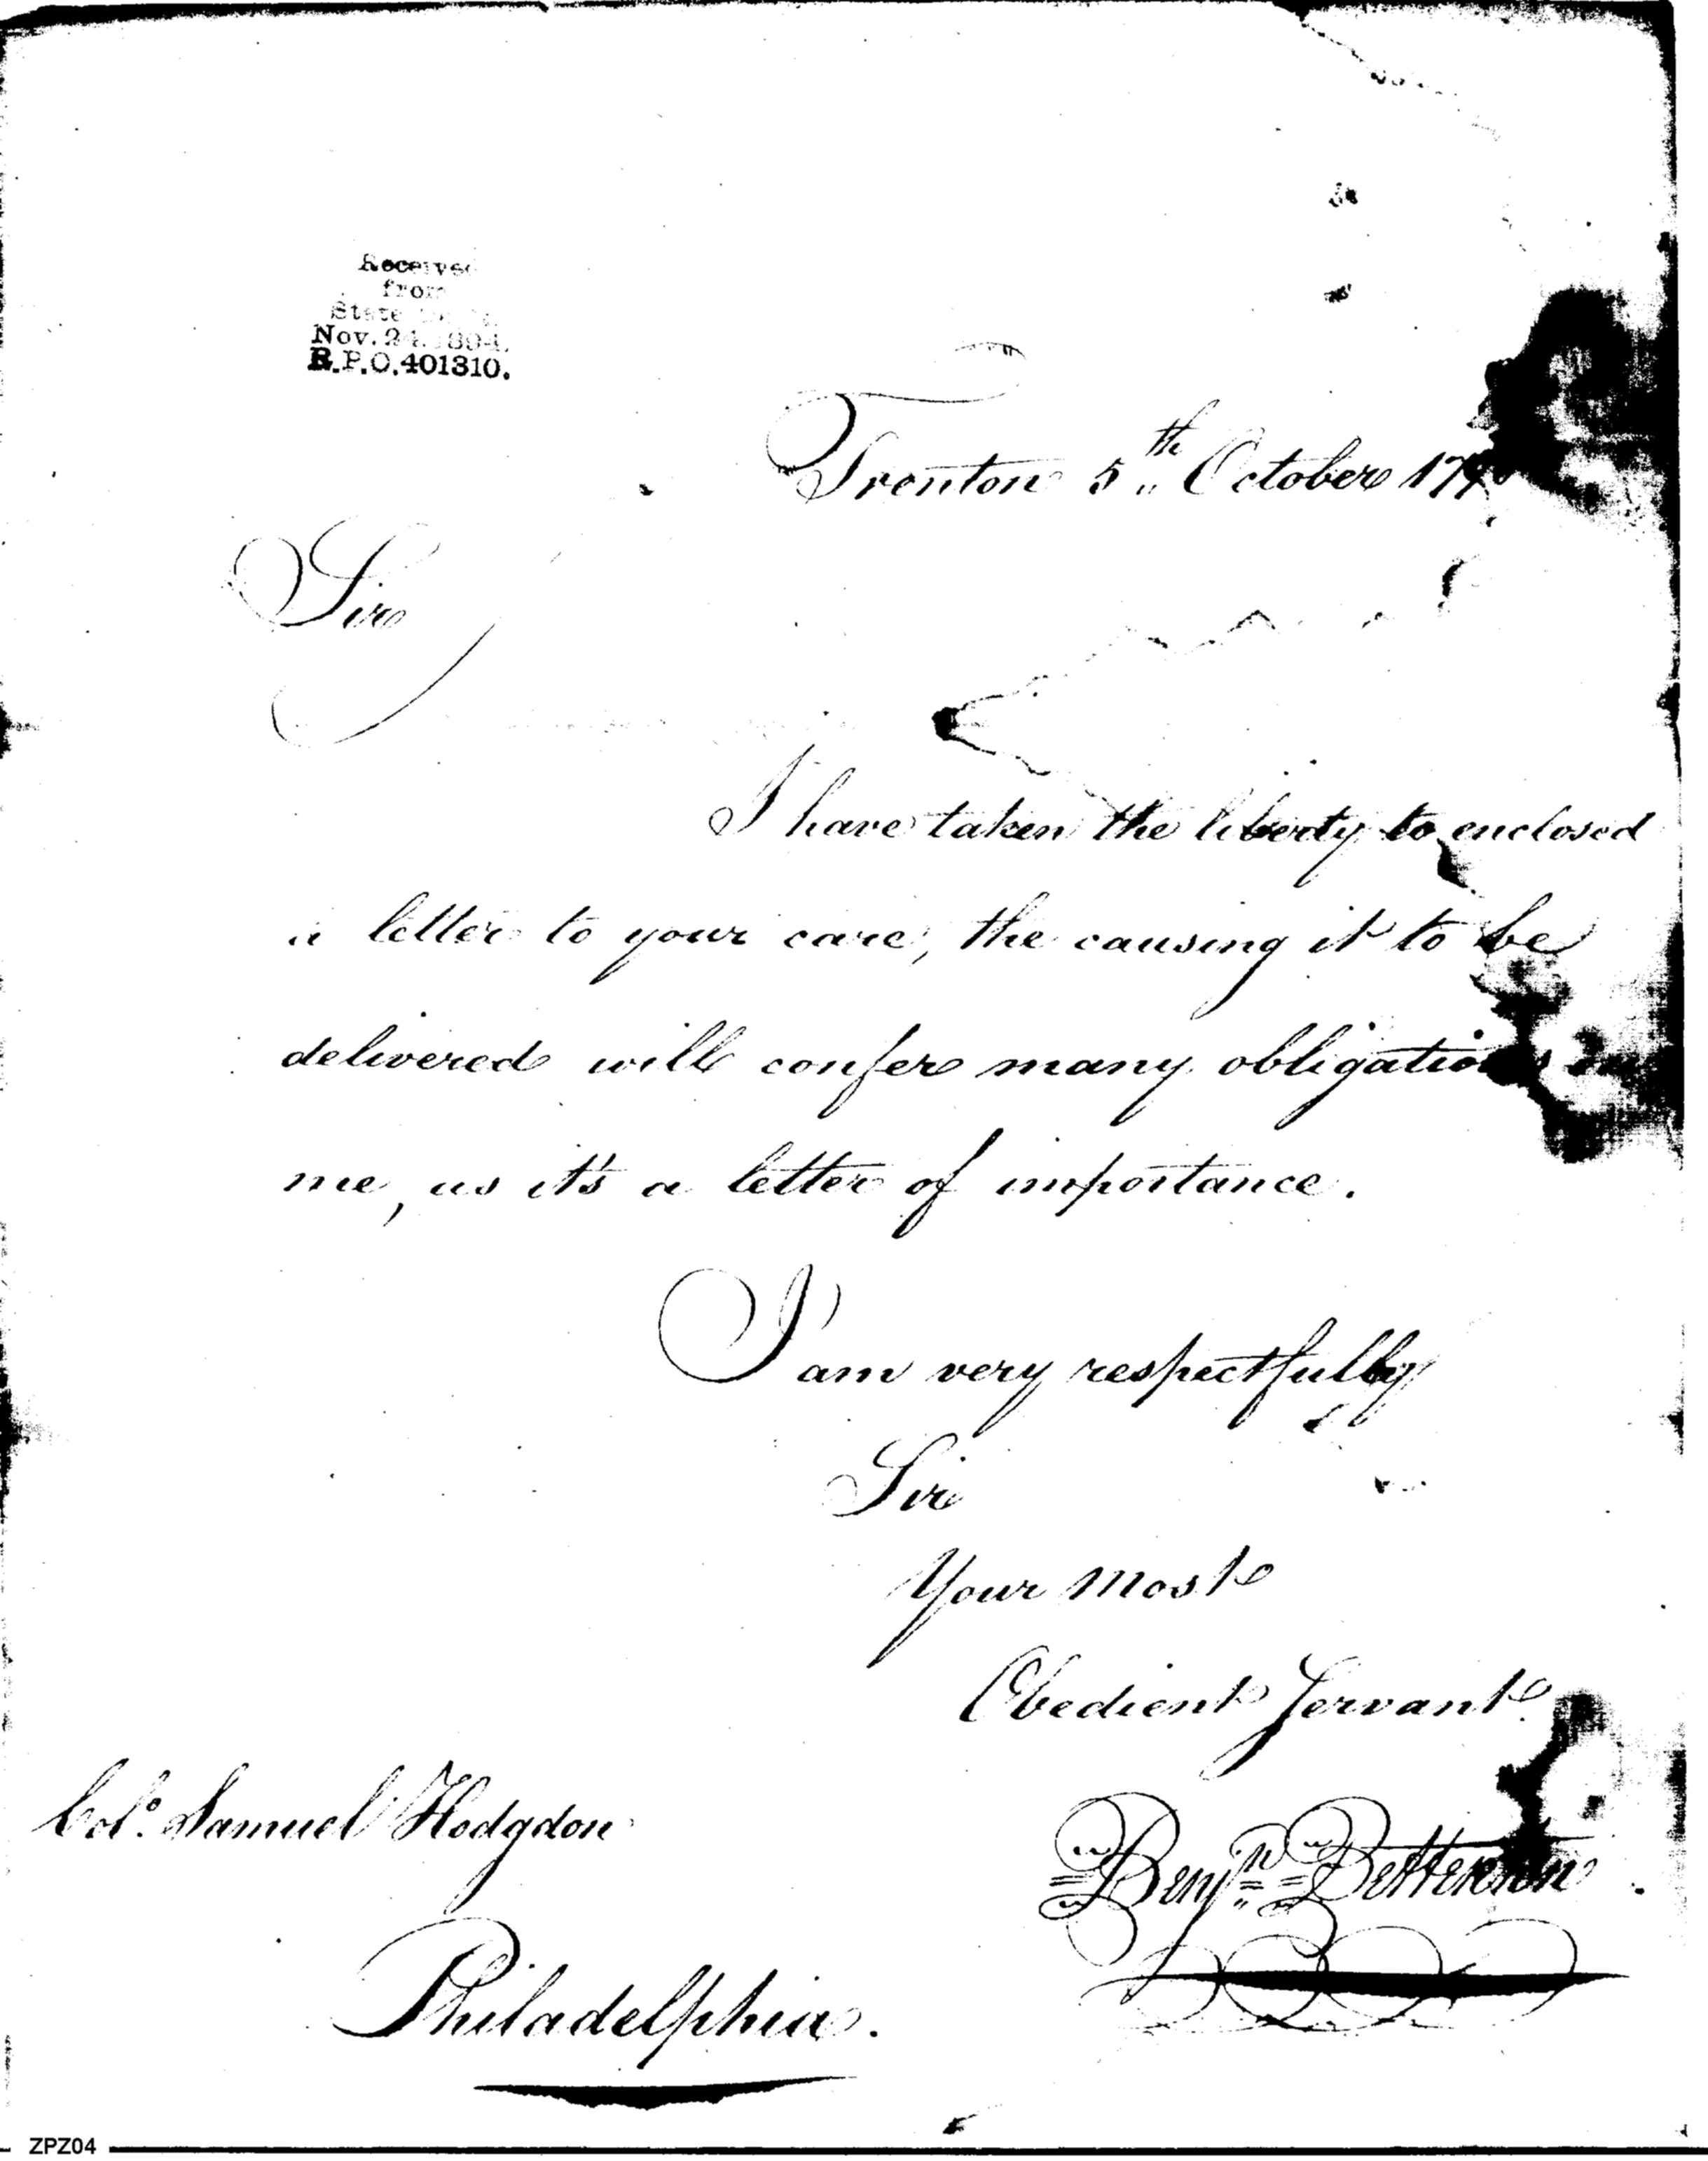 Received
from
State
Nov. 24. 1894.
R.P.O. 401310.
Trenton 5th October 179
Sir
I have taken the liberty to enclosed
a letter to your care, the causing it to be
delivered will confer many obligations
me, as it's a letter of importance.
I am very respectfully
Sir
Your most
Obedient Servant.
Colo. Samuel Hodgdon
Benjn. Betterton
Philadelphia.
ZPZ04